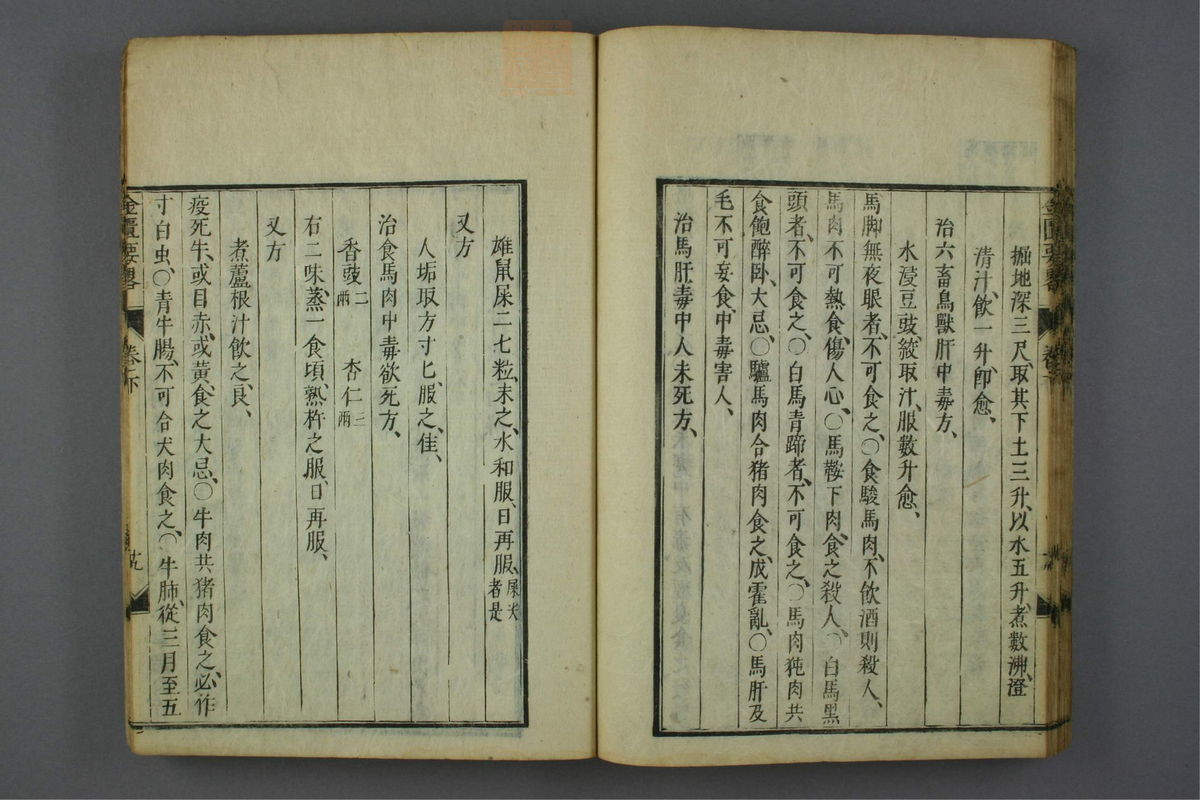 掘地深三尺、取其下土三升、以水五升、煮數沸、澄
清汁、飲一升、卽愈、
治六畜鳥獸肝中毒方、
水浸豆豉絞取汁、服數升愈、
馬脚無夜眼者、不可食之、〇食駿馬肉、不飲酒則殺人、
馬肉不可熱食、傷人心、〇馬鞍下肉、食之殺人、〇白馬黑
頭者、不可食之、〇白馬青蹄者、不可食之、〇馬肉㹠肉共
食飽醉卧、大忌、〇驢馬肉合猪肉食之、成霍亂、〇馬肝及
毛不可妄食、中毒害人、
治馬肝毒中人未死方、
雄鼠屎二七粒、末之、水和服、日再服、屎尖者是
又方
人垢取方寸匕、服之、佳、
治食馬肉中毒欲死方、
香豉二兩 杏仁三兩
右二味、蒸一食頃、熟杵之服、日再服、
又方
煮蘆根汁飲之良、
疫死牛、或目赤、或黃、食之大忌、〇牛肉共猪肉食之、必作
寸白虫、〇青牛腸、不可合犬肉食之、〇牛肺、從三月至五
金匱要畧 卷下